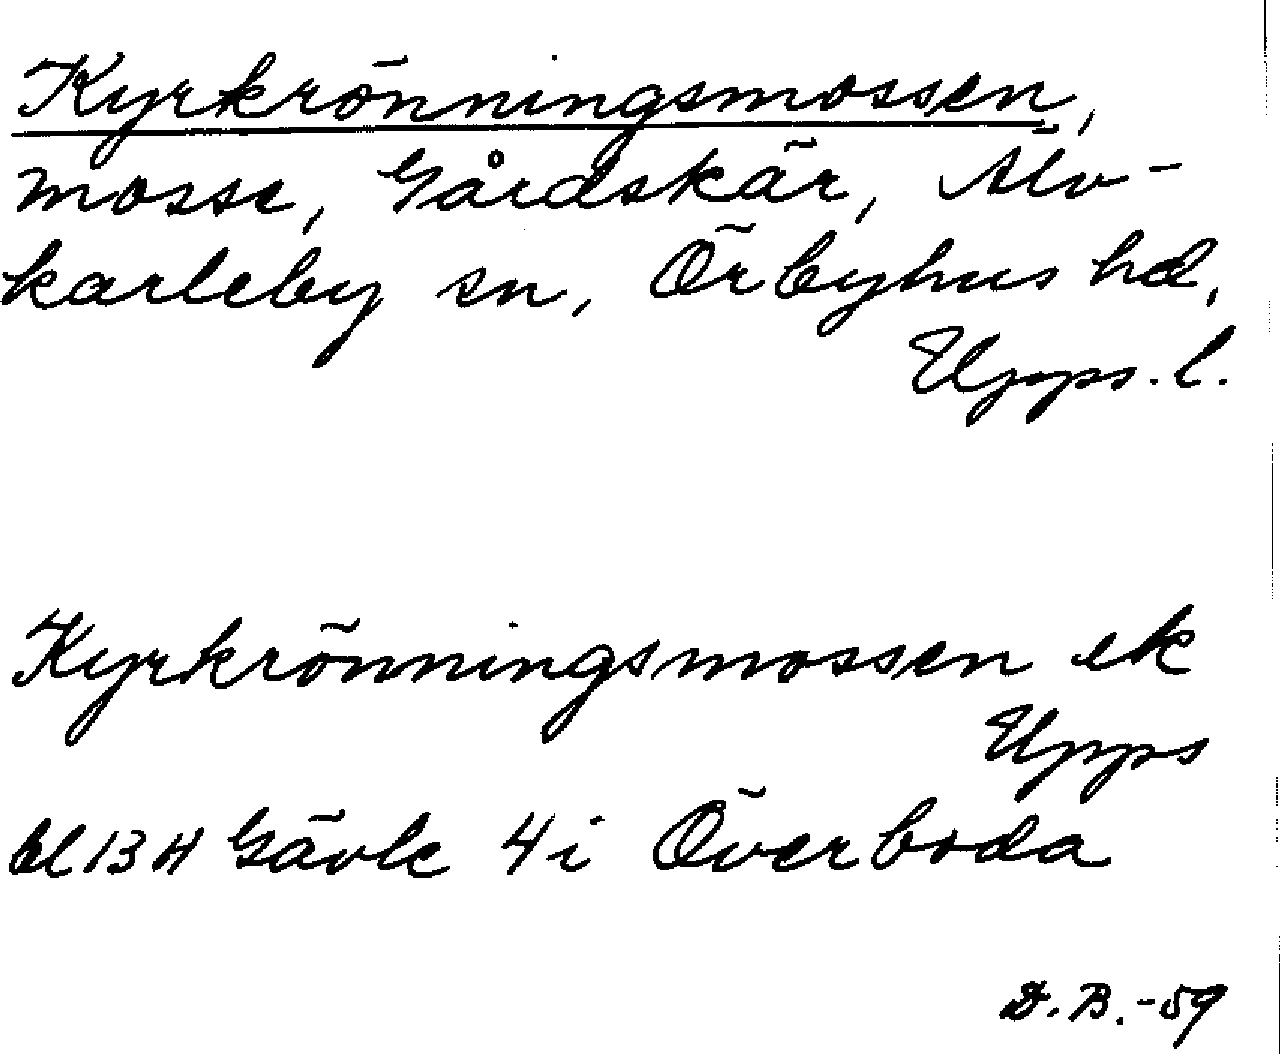 Kyrkrönningsmossen,
mosse, Gårdskär, Älv-
karleby sn, Örbyhus hd,
Upps. l.
Kyrkrönningsmossen ek
Upps
bl 13 H Gävle 4 i Överboda
D. B. -59